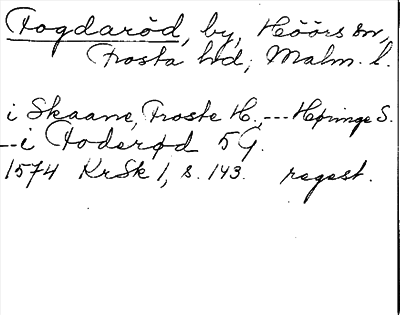 Fogdaröd, by, Höörs sn,
Frosta hd, Malm. l.
i Skaane, Froste H., --- Høringe S.
--- i Foderød 5 G.
1574 KrSk 1, s. 143. regest.